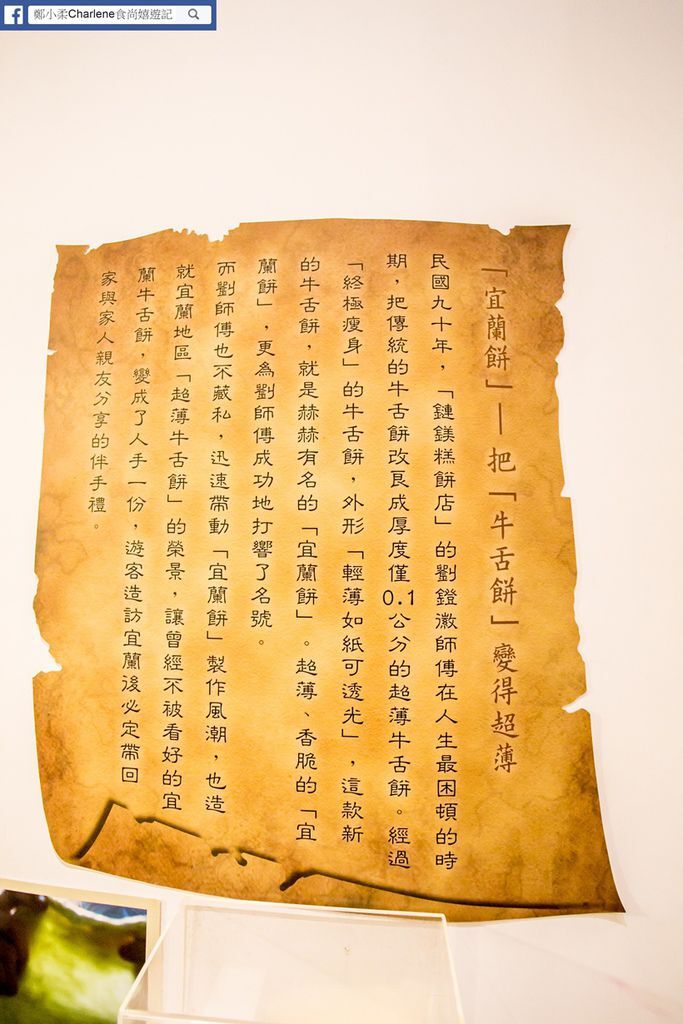 鄭小柔Charlene食尚嬉遊記
「宜蘭餅」—把「牛舌餅」變得超薄
民國九十年，「鏈鎂糕餅店」的劉鐙徽師傅在人生最困頓的時
期，把傳統的牛舌餅改良成厚度僅0.1公分的超薄牛舌餅。經過
「終極瘦身」的牛舌餅，外形「輕薄如紙可透光」，這款新
的牛舌餅，就是赫赫有名的「宜蘭餅」。超薄、香脆的「宜
蘭餅」，更為劉師傅成功地打響了名號。
而劉師傅也不藏私，迅速帶動「宜蘭餅」製作風潮，也造
就宜蘭地區「超薄牛舌餅」的榮景，讓曾經不被看好的宜
蘭牛舌餅，變成了人手一份，遊客造訪宜蘭後必定帶回
家與家人親友分享的伴手禮。